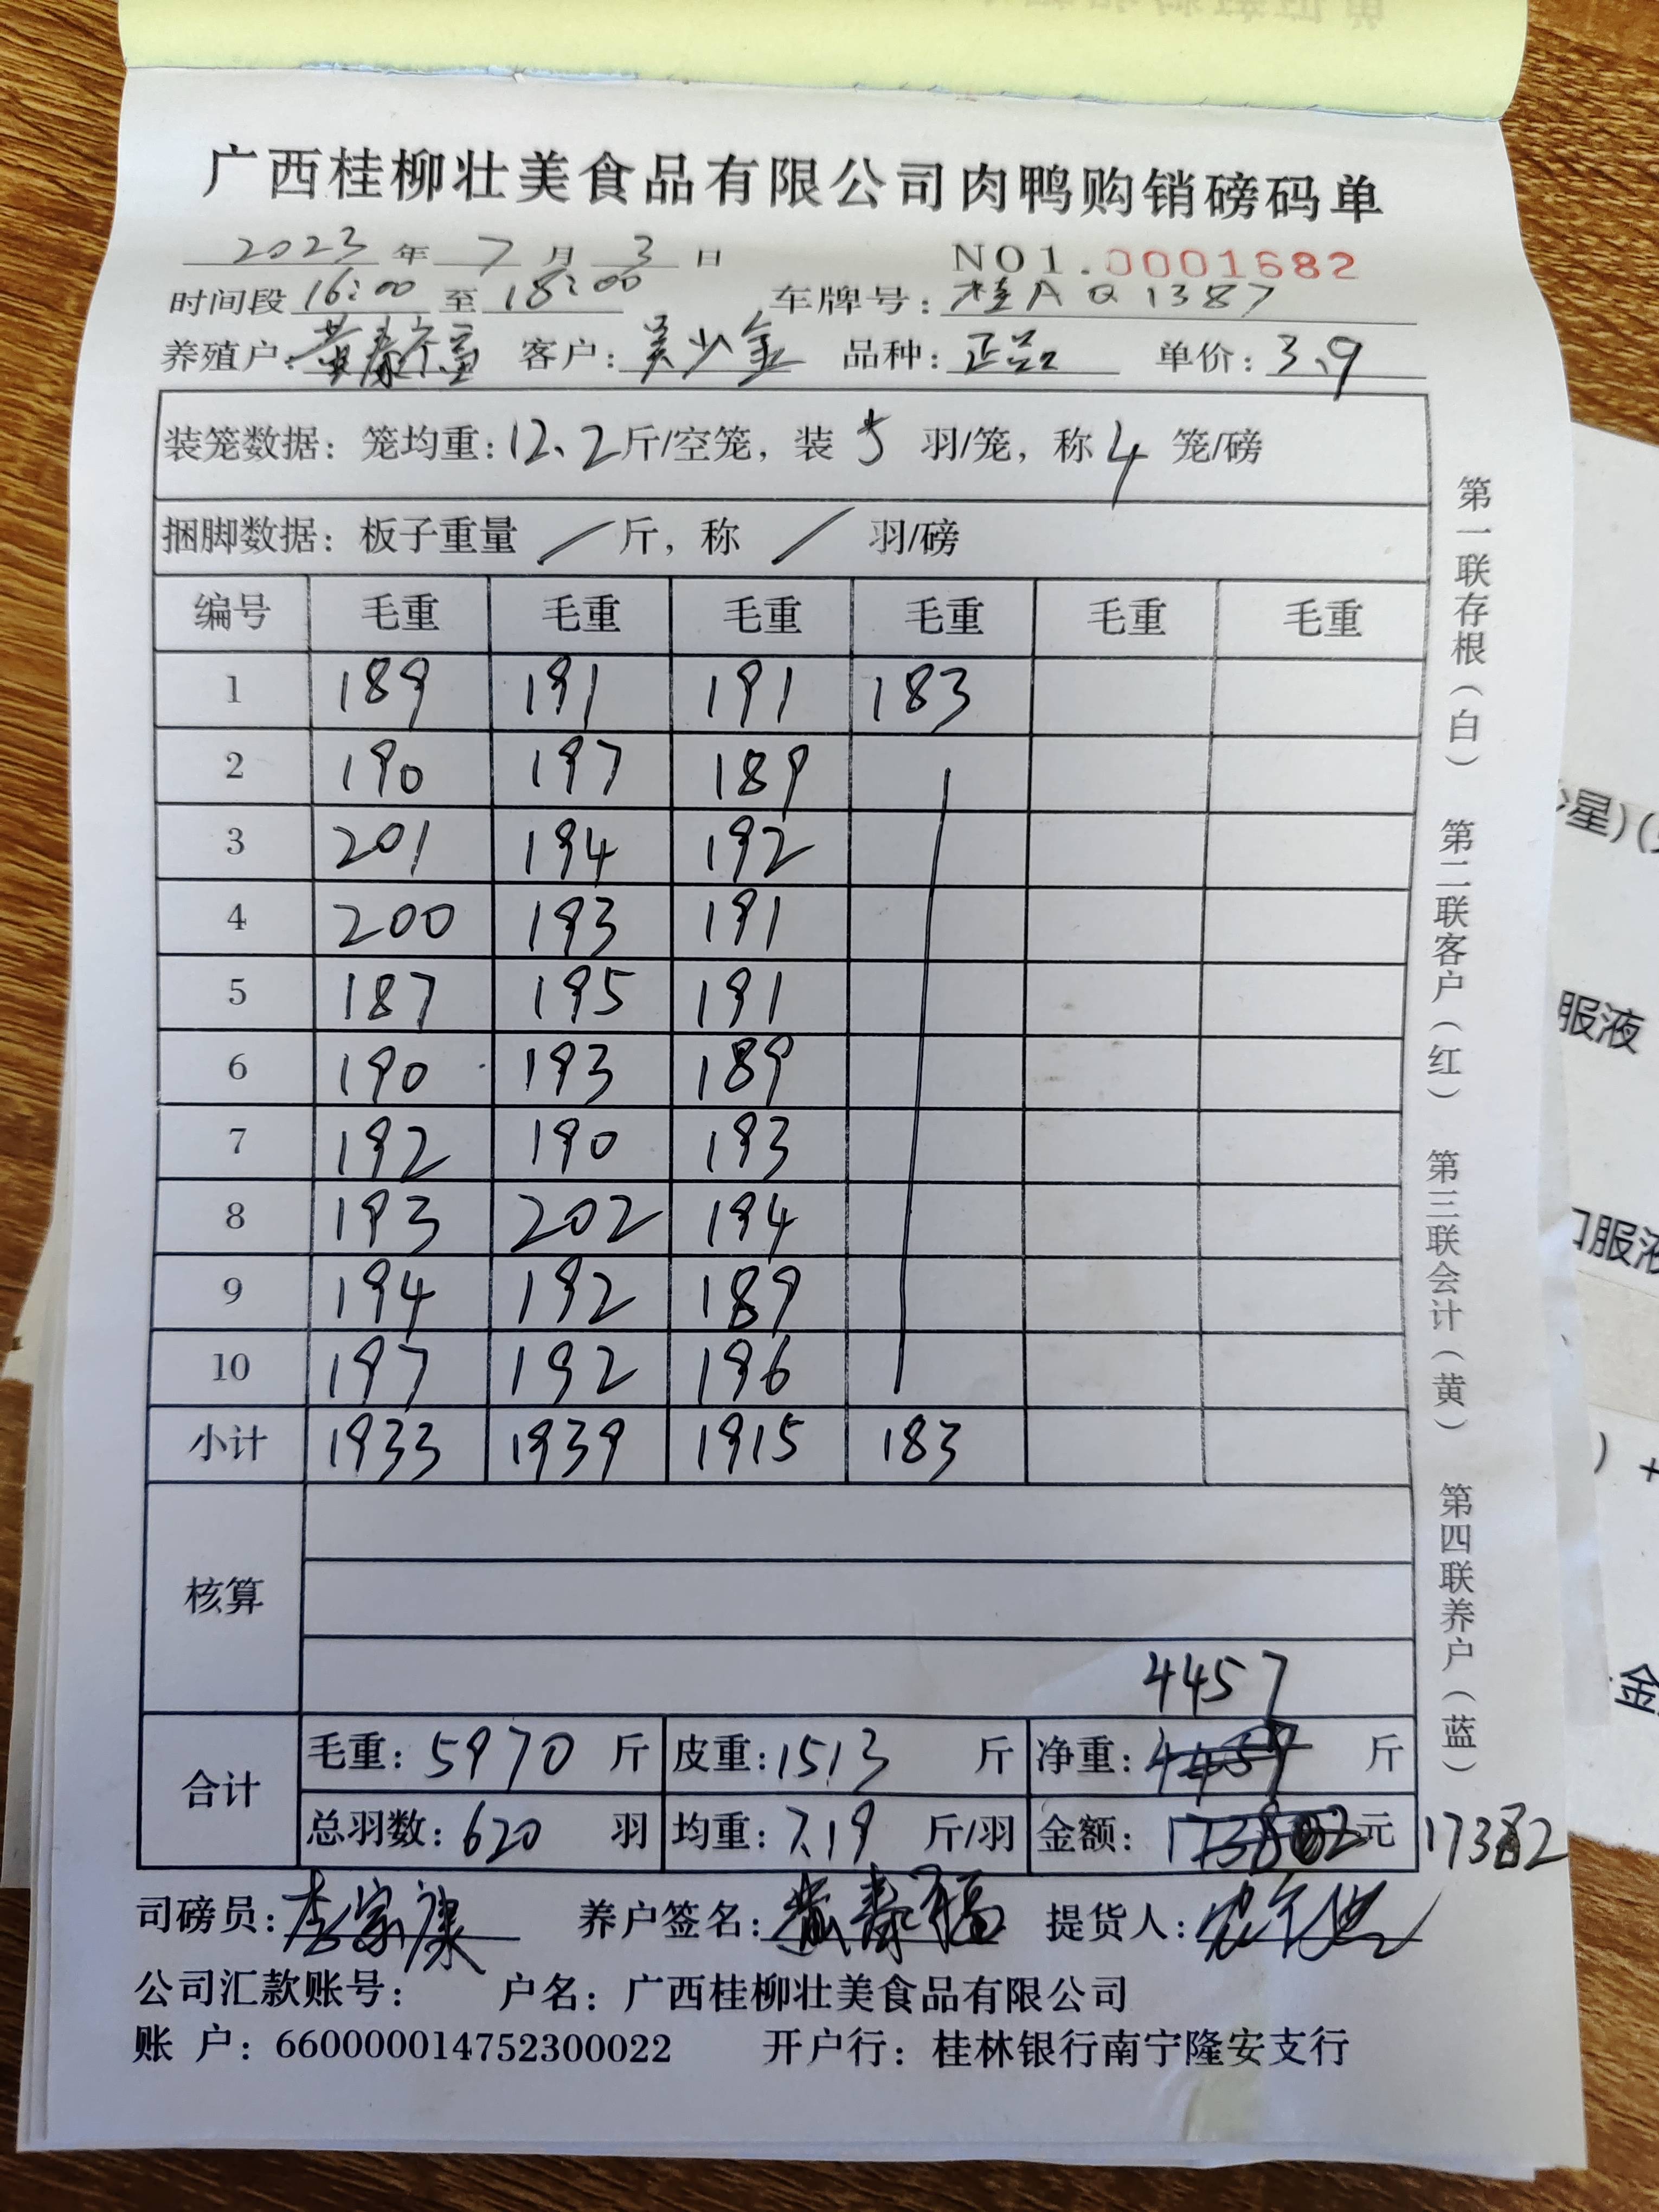 广西桂柳壮美食品有限公司肉鸭购销磅码单
2023 年 7 月 3 日 NO1.0001682
时间段 16:00 至 18:00 车牌号: 桂A Q1387
养殖户: 黄 客户: 吴少金 品种: 正品 单价: 3.9
装笼数据: 笼均重: 12.2 斤/空笼, 装 5 羽/笼, 称 4 笼/磅
捆脚数据: 板子重量 / 斤, 称 / 羽/磅
编号 毛重 毛重 毛重 毛重 毛重 毛重
1 189 191 191 183
2 190 197 189
3 201 194 192
4 200 193 191
5 187 195 191
6 190 193 189
7 192 190 193
8 193 202 194
9 194 192 189
10 197 192 196
小计 1933 1939 1915 183
核算
4457
合计
毛重: 5970 斤 皮重: 1513 斤 净重: 斤
总羽数: 620 羽 均重: 7.19 斤/羽 金额: 元 17382
司磅员: 李家康 养户签名: 黄 提货人:
公司汇款账号: 户名: 广西桂柳壮美食品有限公司
账 户: 660000014752300022 开户行: 桂林银行南宁隆安支行
第一联存根(白) 第二联客户(红) 第三联会计(黄) 第四联养户(蓝)
星)(
服液
口服液
) +
金